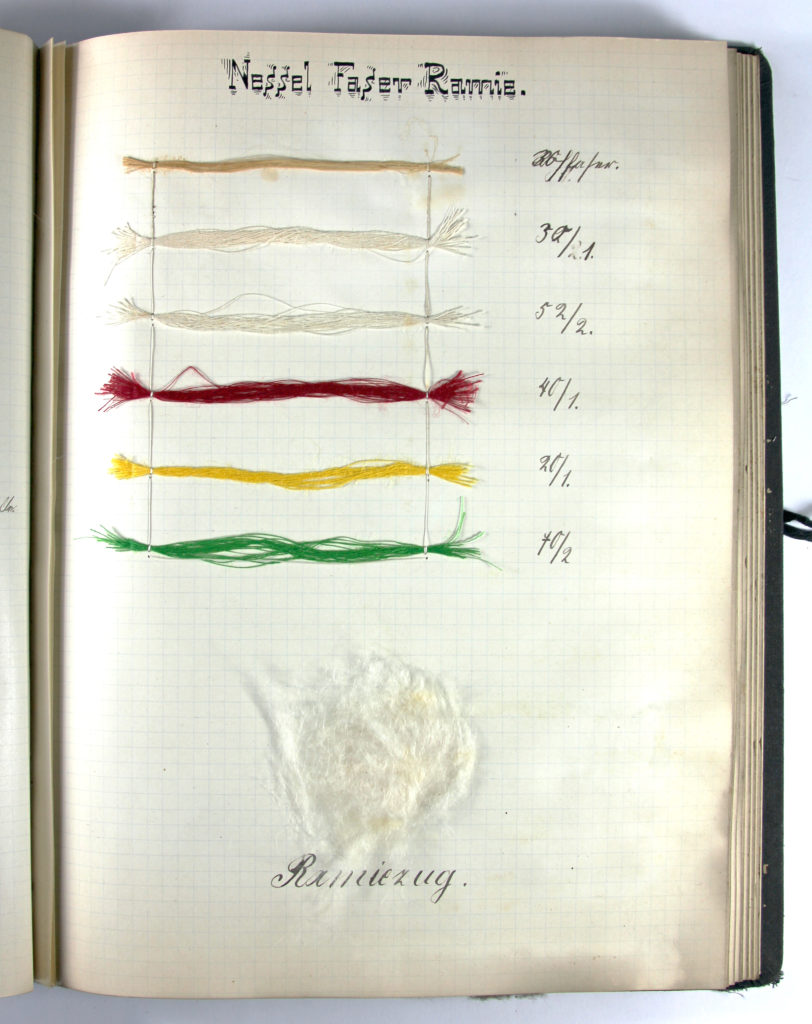 Nessel Faser Ramie.
30/2.1.
52/2.
40/1.
20/1.
40/2
Ramiezug.